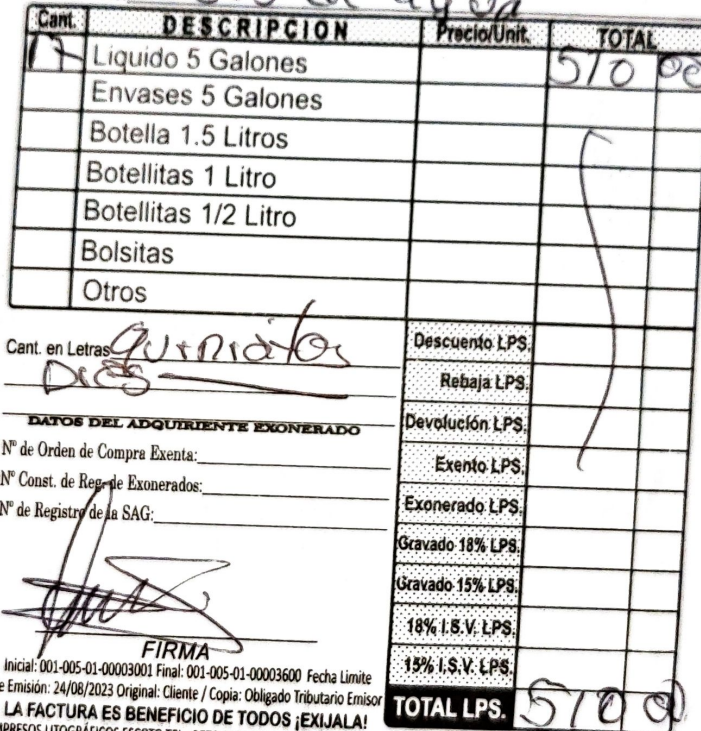 agua
Cant. DESCRIPCION Precio/Unit. TOTAL
17 Liquido 5 Galones 510 00
Envases 5 Galones
Botella 1.5 Litros
Botellitas 1 Litro
Botellitas 1/2 Litro
Bolsitas
Otros
Cant. en Letras Quinientos
Dies
DATOS DEL ADQUIRIENTE EXONERADO
N° de Orden de Compra Exenta:
N° Const. de Reg. de Exonerados:
N° de Registro de la SAG:
FIRMA
Inicial: 001-005-01-00003001 Final: 001-005-01-00003600 Fecha Limite
e Emisión: 24/08/2023 Original: Cliente / Copia: Obligado Tributario Emisor
LA FACTURA ES BENEFICIO DE TODOS ¡EXIJALA!
Descuento LPS.
Rebaja LPS.
Devolución LPS.
Exento LPS.
Exonerado LPS.
Gravado 18% LPS.
Gravado 15% LPS.
18% I.S.V. LPS.
15% I.S.V. LPS.
TOTAL LPS. 510 00